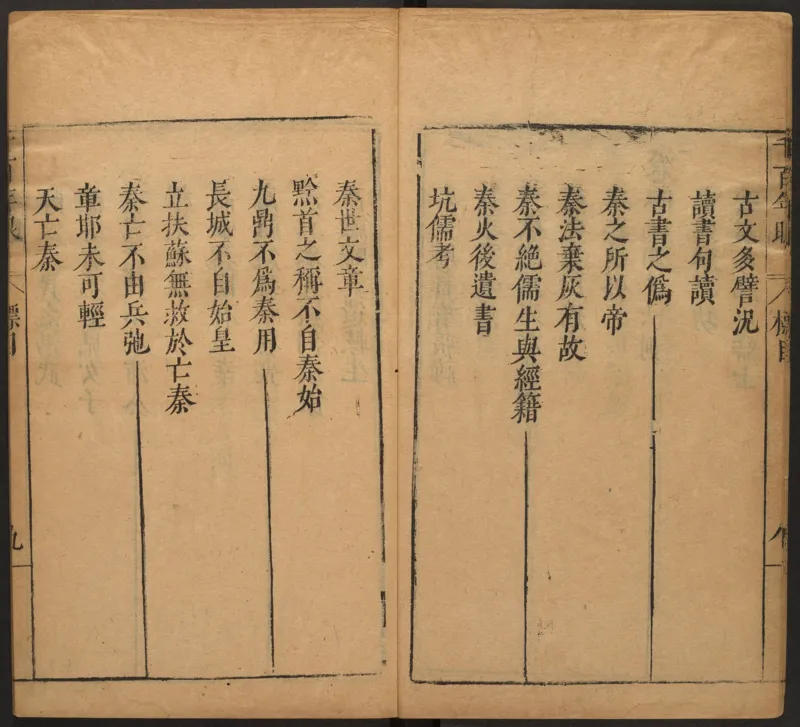 千百年眼 標目
古文多譬況
讀書句讀
古書之僞
秦之所以帝
秦法棄灰有故
秦不絕儒生與經籍
秦火後遺書
坑儒考
八
秦世文章
黔首之稱不自秦始
九鼎不爲秦用
長城不自始皇
立扶蘇無救於亡秦
秦亡不由兵弛
章邯未可輕
天亡秦
千百年眼 標目
九